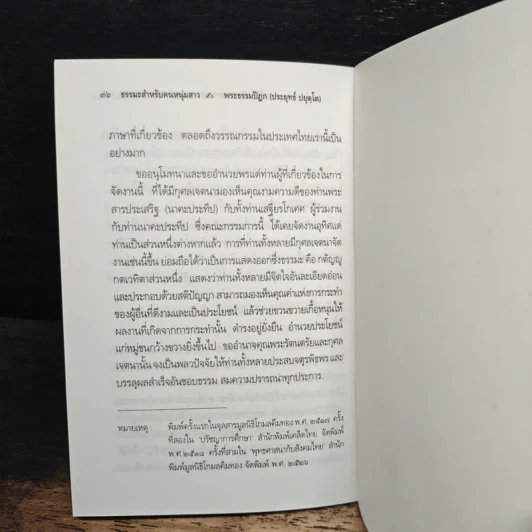 ๓๖ ธรรมะสำหรับคนหนุ่มสาว พระธรรมปิฎก (ประยุทธ์ ปยุตฺโต)
ภาษาที่เกี่ยวข้อง ตลอดถึงวรรณกรรมในประเทศไทยเรานี้เป็น
อย่างมาก
ขออนุโมทนาและขออำนวยพรแด่ท่านผู้ที่เกี่ยวข้องในการ
จัดงานนี้ ที่ได้มีกุศลเจตนามองเห็นคุณงามความดีของท่านพระ
สารประเสริฐ (นาคะประทีป) กับทั้งท่านเสฐียรโกเศศ ผู้ร่วมงาน
กับท่านนาคะประทีป ซึ่งคณะกรรมการนี้ ได้เคยจัดงานอุทิศแด่
ท่านเป็นส่วนหนึ่งต่างหากแล้ว การที่ท่านทั้งหลายมีกุศลเจตนาจัด
งานเช่นนี้ขึ้น ย่อมถือได้ว่าเป็นการแสดงออกซึ่งธรรมะ คือ กตัญญู
กตเวทิตาส่วนหนึ่ง แสดงว่าท่านทั้งหลายมีจิตใจอันละเอียดอ่อน
และประกอบด้วยสติปัญญา สามารถมองเห็นคุณค่าแห่งการกระทำ
ของผู้อื่นที่ดีงามและเป็นประโยชน์ แล้วช่วยขวนขวายเกื้อหนุนให้
ผลงานที่เกิดจากการกระทำนั้น ดำรงอยู่ยั่งยืน อำนวยประโยชน์
แก่หมู่ชนกว้างขวางยิ่งขึ้นไป ขออำนาจคุณพระรัตนตรัยและกุศล
เจตนานั้น จงเป็นพลวปัจจัยให้ท่านทั้งหลายประสบจตุรพิธพร และ
บรรลุผลสำเร็จอันชอบธรรม สมความปรารถนาทุกประการ.
หมายเหตุ พิมพ์ครั้งแรกในจุลสารมูลนิธิโกมลคีมทอง พ.ศ. ๒๕๑๗ ครั้ง
ที่สองใน 'ปรัชญาการศึกษา' สำนักพิมพ์เคล็ดไทย จัดพิมพ์
พ.ศ ๒๕๑๘ ครั้งที่สามใน 'พุทธศาสนากับสังคมไทย' สำนัก
พิมพ์มูลนิธิโกมลคีมทอง จัดพิมพ์ พ.ศ. ๒๕๒๖